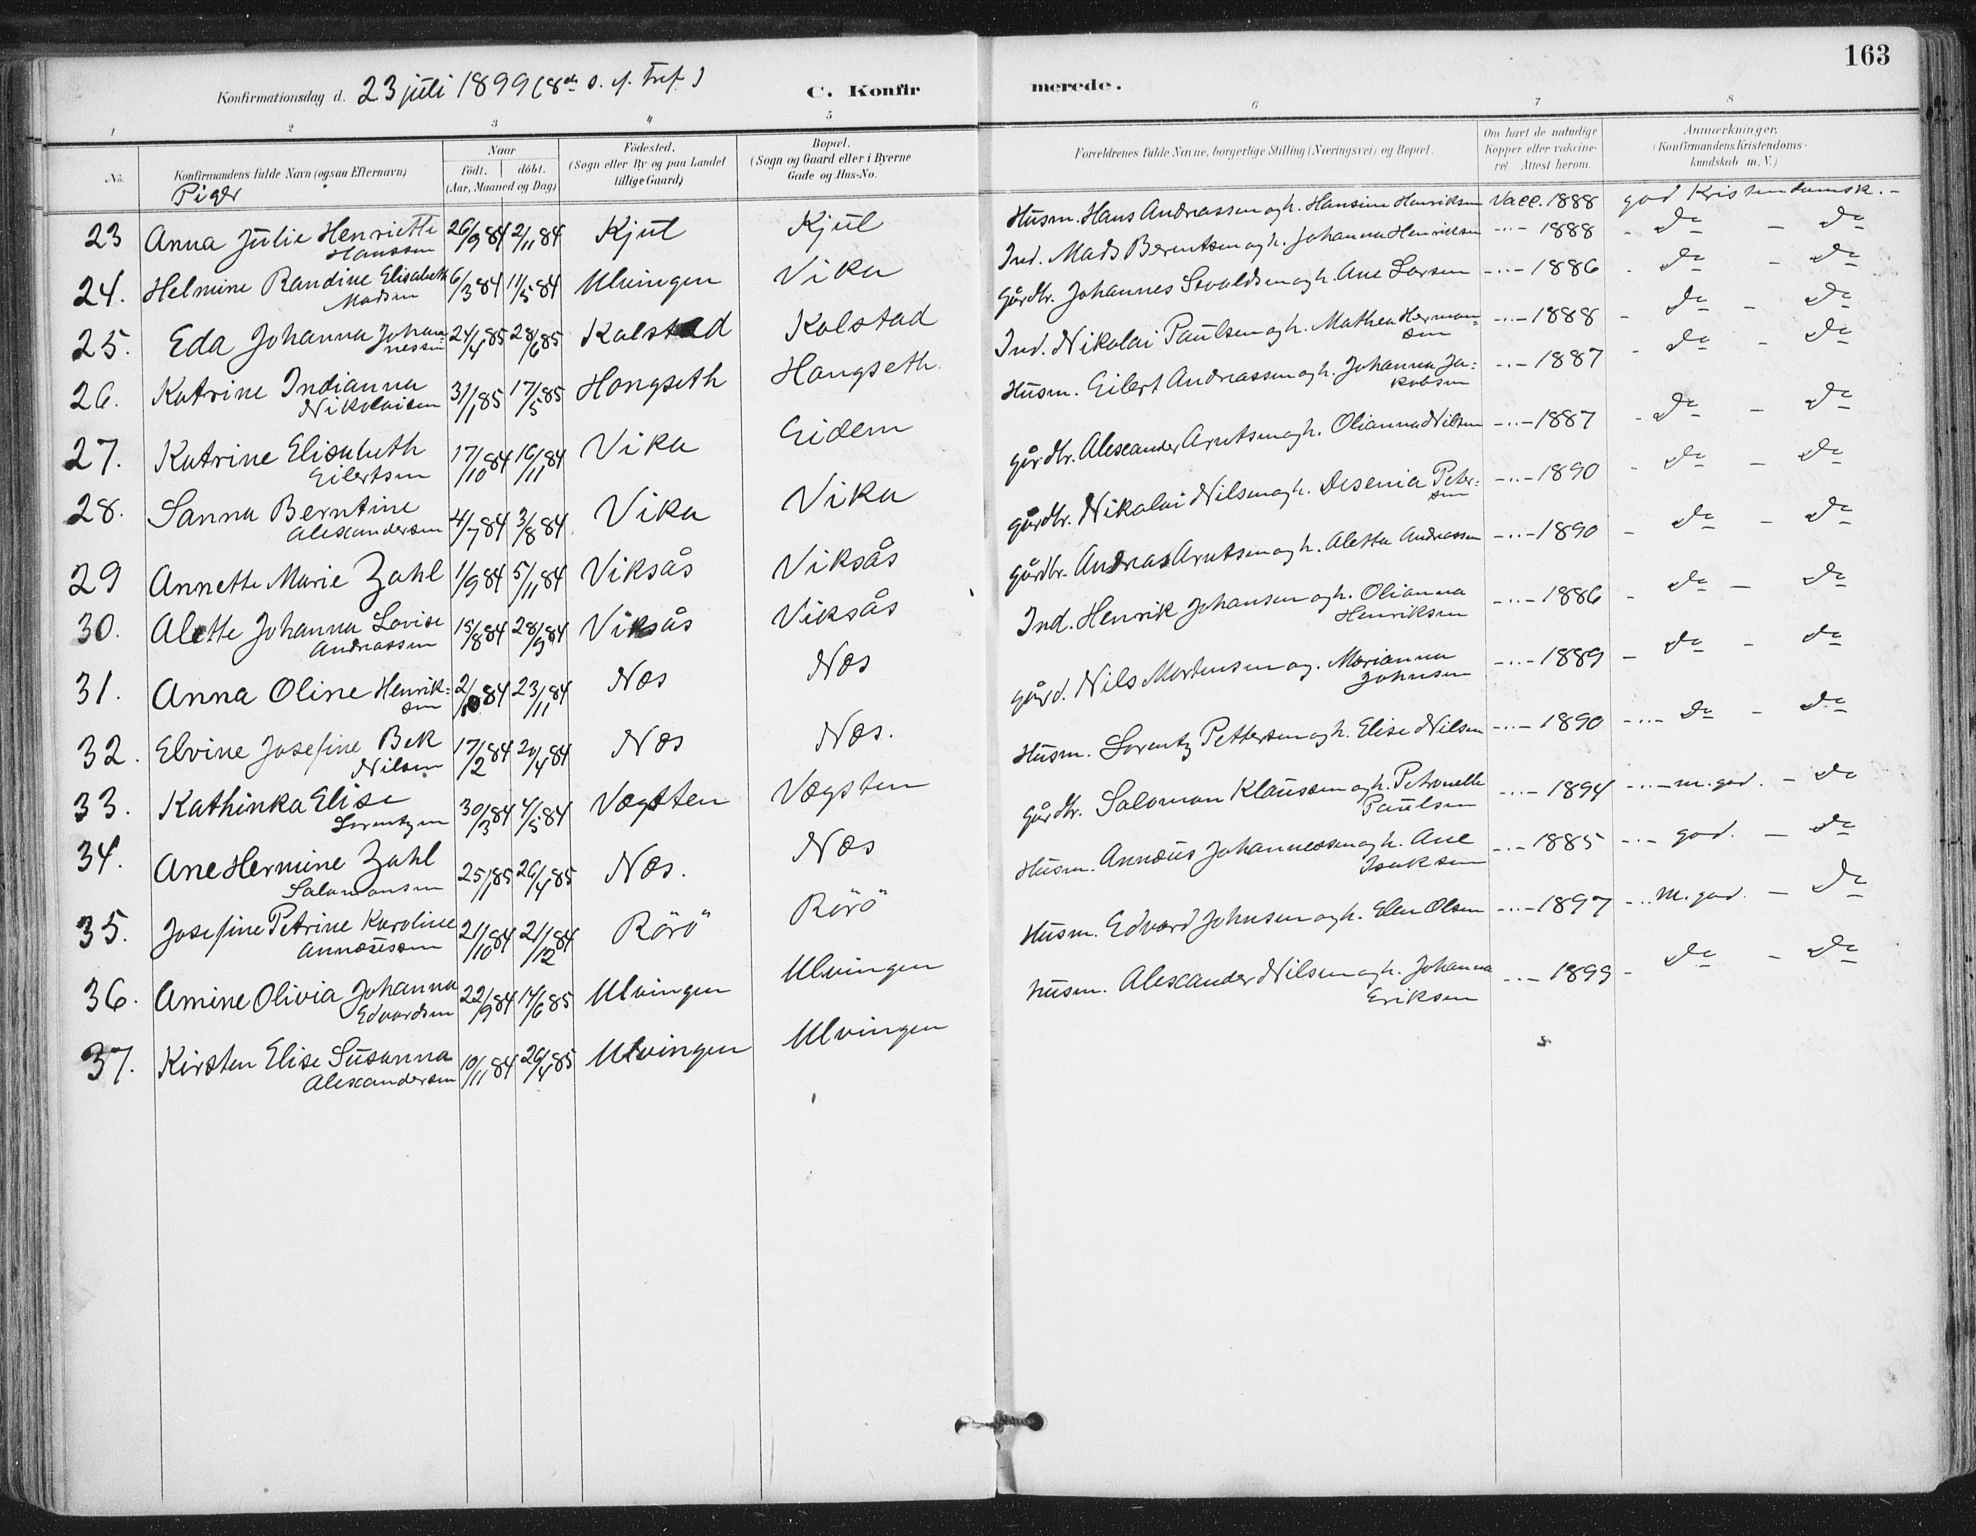 163
Konfirmationsdag d. 23 juli 1899 (8de s. e. Tref.)
C. Konfirmerede.
1 2 3 4 5 6 7 8
No. Konfirmandens fulde Navn (ogsaa Efternavn) Naar født. døbt. (Aar, Maaned og Dag) Fødested. (Sogn eller By og paa Landet tillige Gaard) Bopæl. (Sogn og Gaard eller i Byerne Gade og Hus-No. Forældrenes fulde Navne, borgerlige Stilling (Næringsvei) og Bopæl. Om havt de naturlige Kopper eller vaccineret. Attest herom. Anmærkninger. (Konfirmandens Kristendomskundskab m. V.)
Piger
23 Anna Julie Henriette Hanssen 26/9 84 2/11 84 Kjul Kjul Husm. Hans Andreassen og h. Hansine Henriksen Vacc. 1888 god Kristendomsk.-
24. Helmine Randine Elisabeth Madsen 6/3 84 11/5 84 Ulvingen Vika Ind. Mads Berentsen og h. Johanna Henriksen -"- 1888 - Do - Do
25. Eda Johanna Johannessen 24/4 85 28/6 85 Kolstad Kolstad Gårdbr. Johannes Sevaldsen og h. Ane Larsen -"- 1886 - Do - Do
26. Katrine Indianna Nikolaisen 31/1 85 17/5 85 Hongseth Hongseth. Ind. Nikolai Paulsen og h. Mathea Hermansen -"- 1888 - Do - Do
27. Katrine Elisabeth Eilertsen 17/10 84 16/11 84 Vika Eidem Husm. Eilert Andreassen og h. Johanna Jakobsen -"- 1887 - Do - Do
28. Sanna Berntine Alexandersen 4/7 84 3/8 84 Vika Vika gårdbr. Alexander Arntsen og h. Olianna Nilsen -"- 1887 - Do - Do
29 Annette Marie Zahl 1/9 84 5/11 84 Viksås Viksås gårdbr. Nikolai Nilsen og h. Desenia Petersen -"- 1890 - Do - Do
30. Alette Johanna Lovise Andreassen 15/8 84 28/9 84 Viksås Viksås gårdbr. Andreas Arntsen og h. Aletta Andreassen -"- 1890 - Do - Do
31. Anna Oline Henriksen 2/10 84 23/11 84 Næs Næs Ind. Henrik Johansen og h. Olianna Henriksen -"- 1886 - Do - Do
32. Elvine Josefine Bek Nilsen 17/2 84 20/4 84 Næs Næs. gård. Nils Mortensen og. Marianna Johnsen -"- 1889 - Do - Do
33. Kathinka Elise Lorentzen 30/3 84 4/5 84 Vægsten Vægsten Husm. Lorentz Pettersen og h. Elise Nilsen -"- 1890 -"- Do - Do
34. Ane Hermine Zahl Salomonsen 25/1 85 26/4 85 Næs. Næs gårdbr. Salomon Klaussen og h. Petronelle Paulsen -"- 1894 -"- m. god. - Do
35. Josefine Petrine Karoline Annæussen 21/10 84 21/12 84 Rörö Rörö Husm. Annæus Johannessen og h. Ane Isaksen -"- 1885 -"- god. - Do
36. Amine Olivia Johanna Edvardsen 22/9 84 14/6 85 Ulvingen Ulvingen Husm. Edvard Johnsen og h. Elen Olsen -"- 1897 -"- m. god. - Do
37. Kirsten Elise Susanna Alexandersen 10/11 84 26/4 85 Ulvingen Ulvingen Husm. Alexander Nilsen og h. Johanna Eriksen -"- 1899 - Do - Do